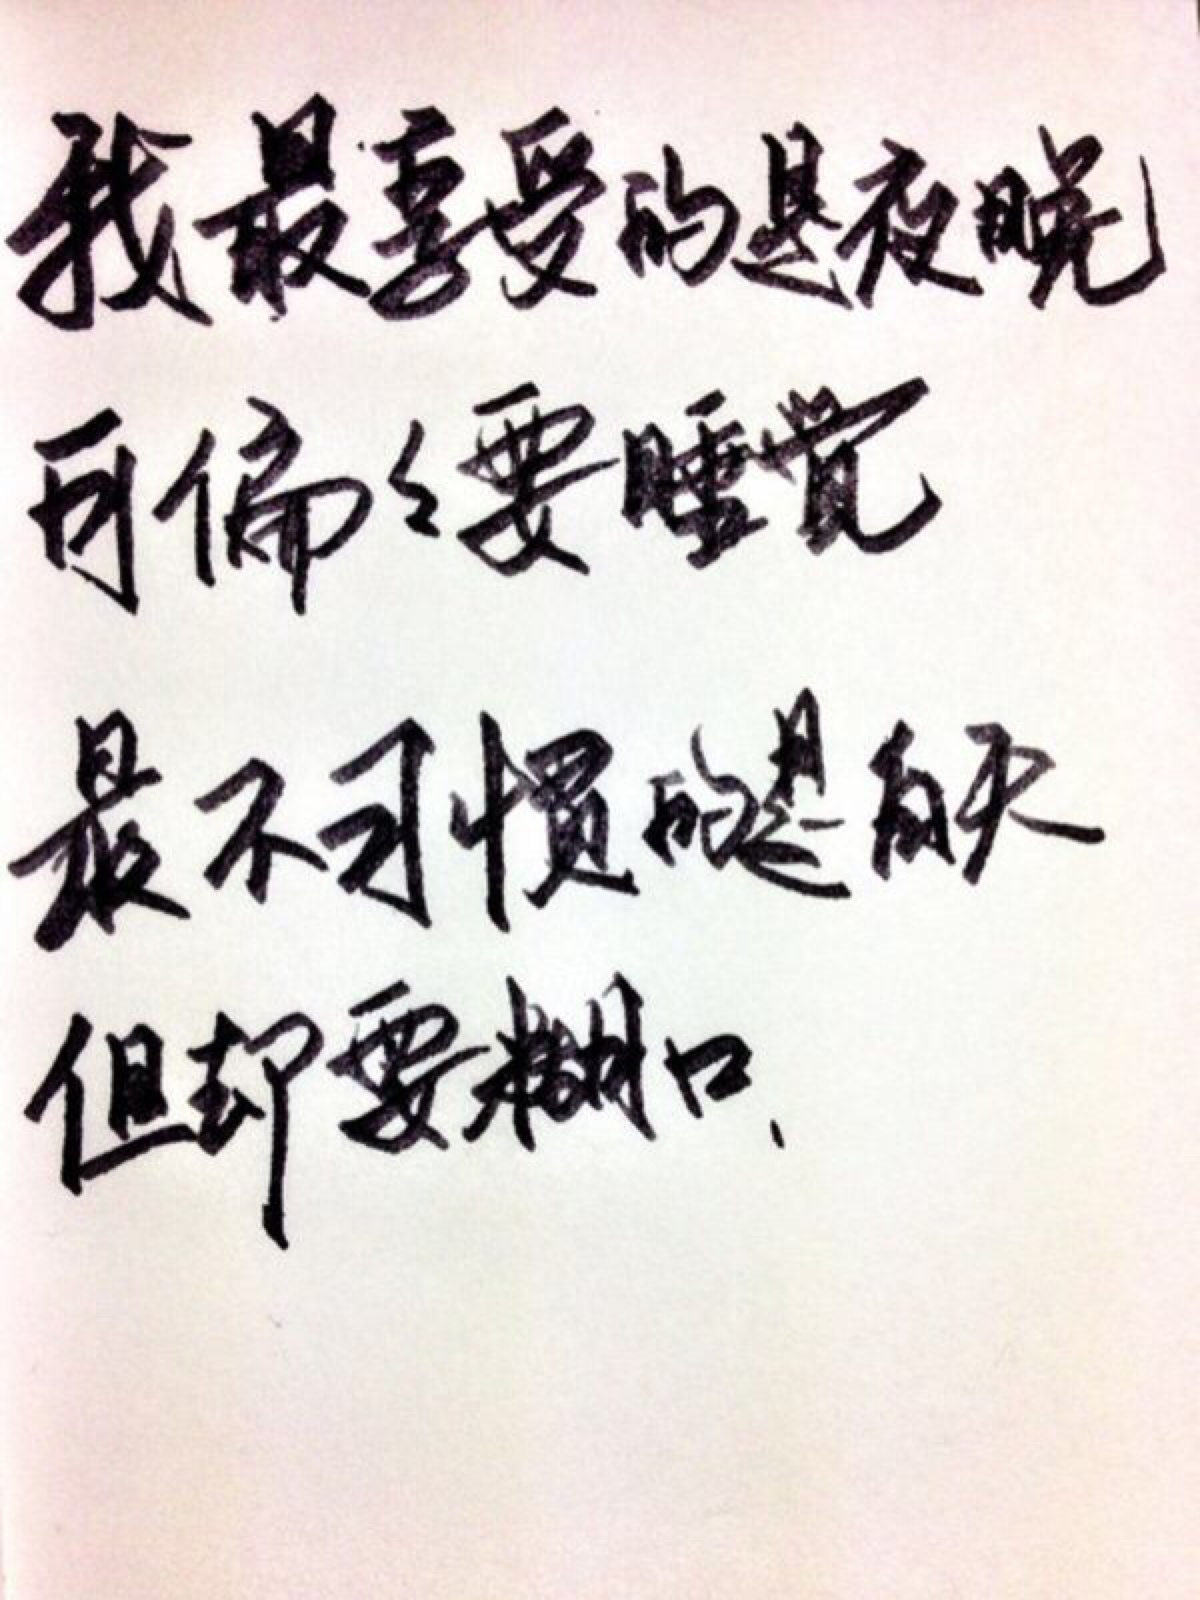 我最喜爱的是夜晚
可偏々要睡觉
最不习惯的是白天
但却要糊口、